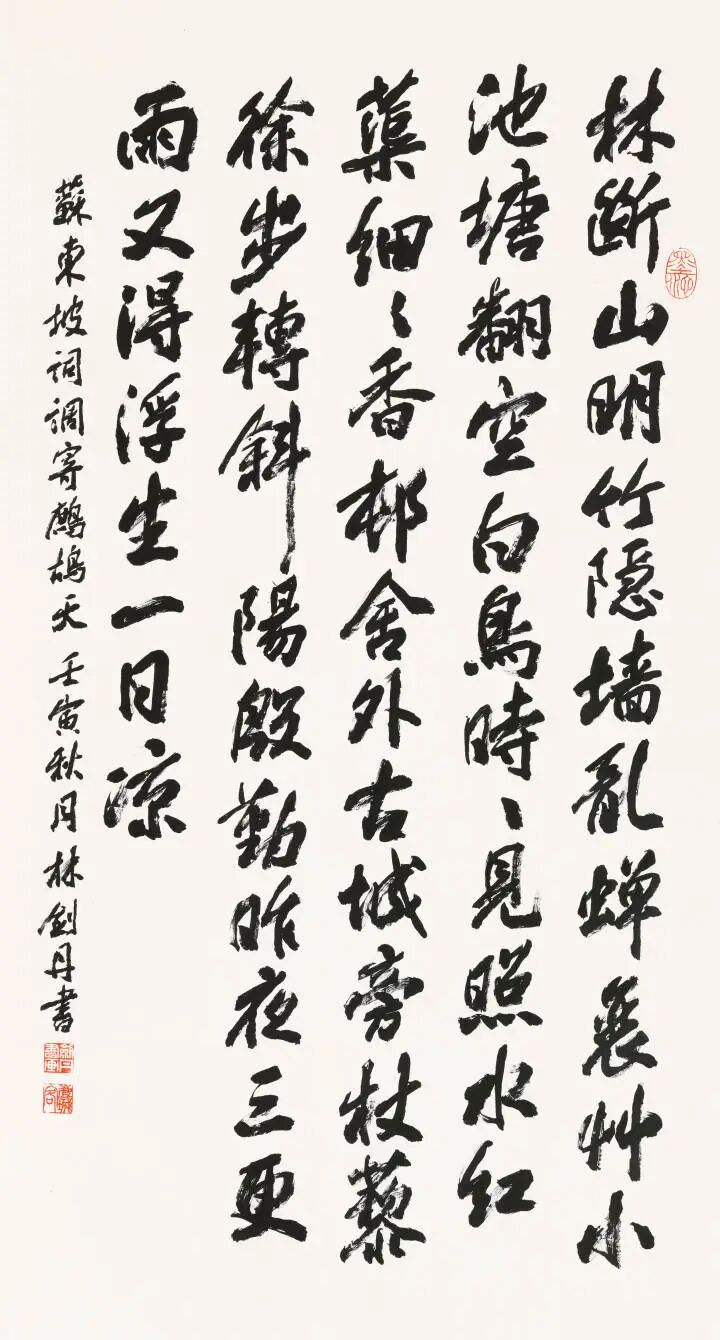 林断山明竹隐墙乱蝉衰艸小
池塘翻空白鳥時〻見照水红
蕖细〻香邨舍外古城旁杖藜
徐步轉斜陽殷勤昨夜三更
雨又得浮生一日凉
蘇東坡词调寄鹧鸪天 壬寅秋月林剑丹書